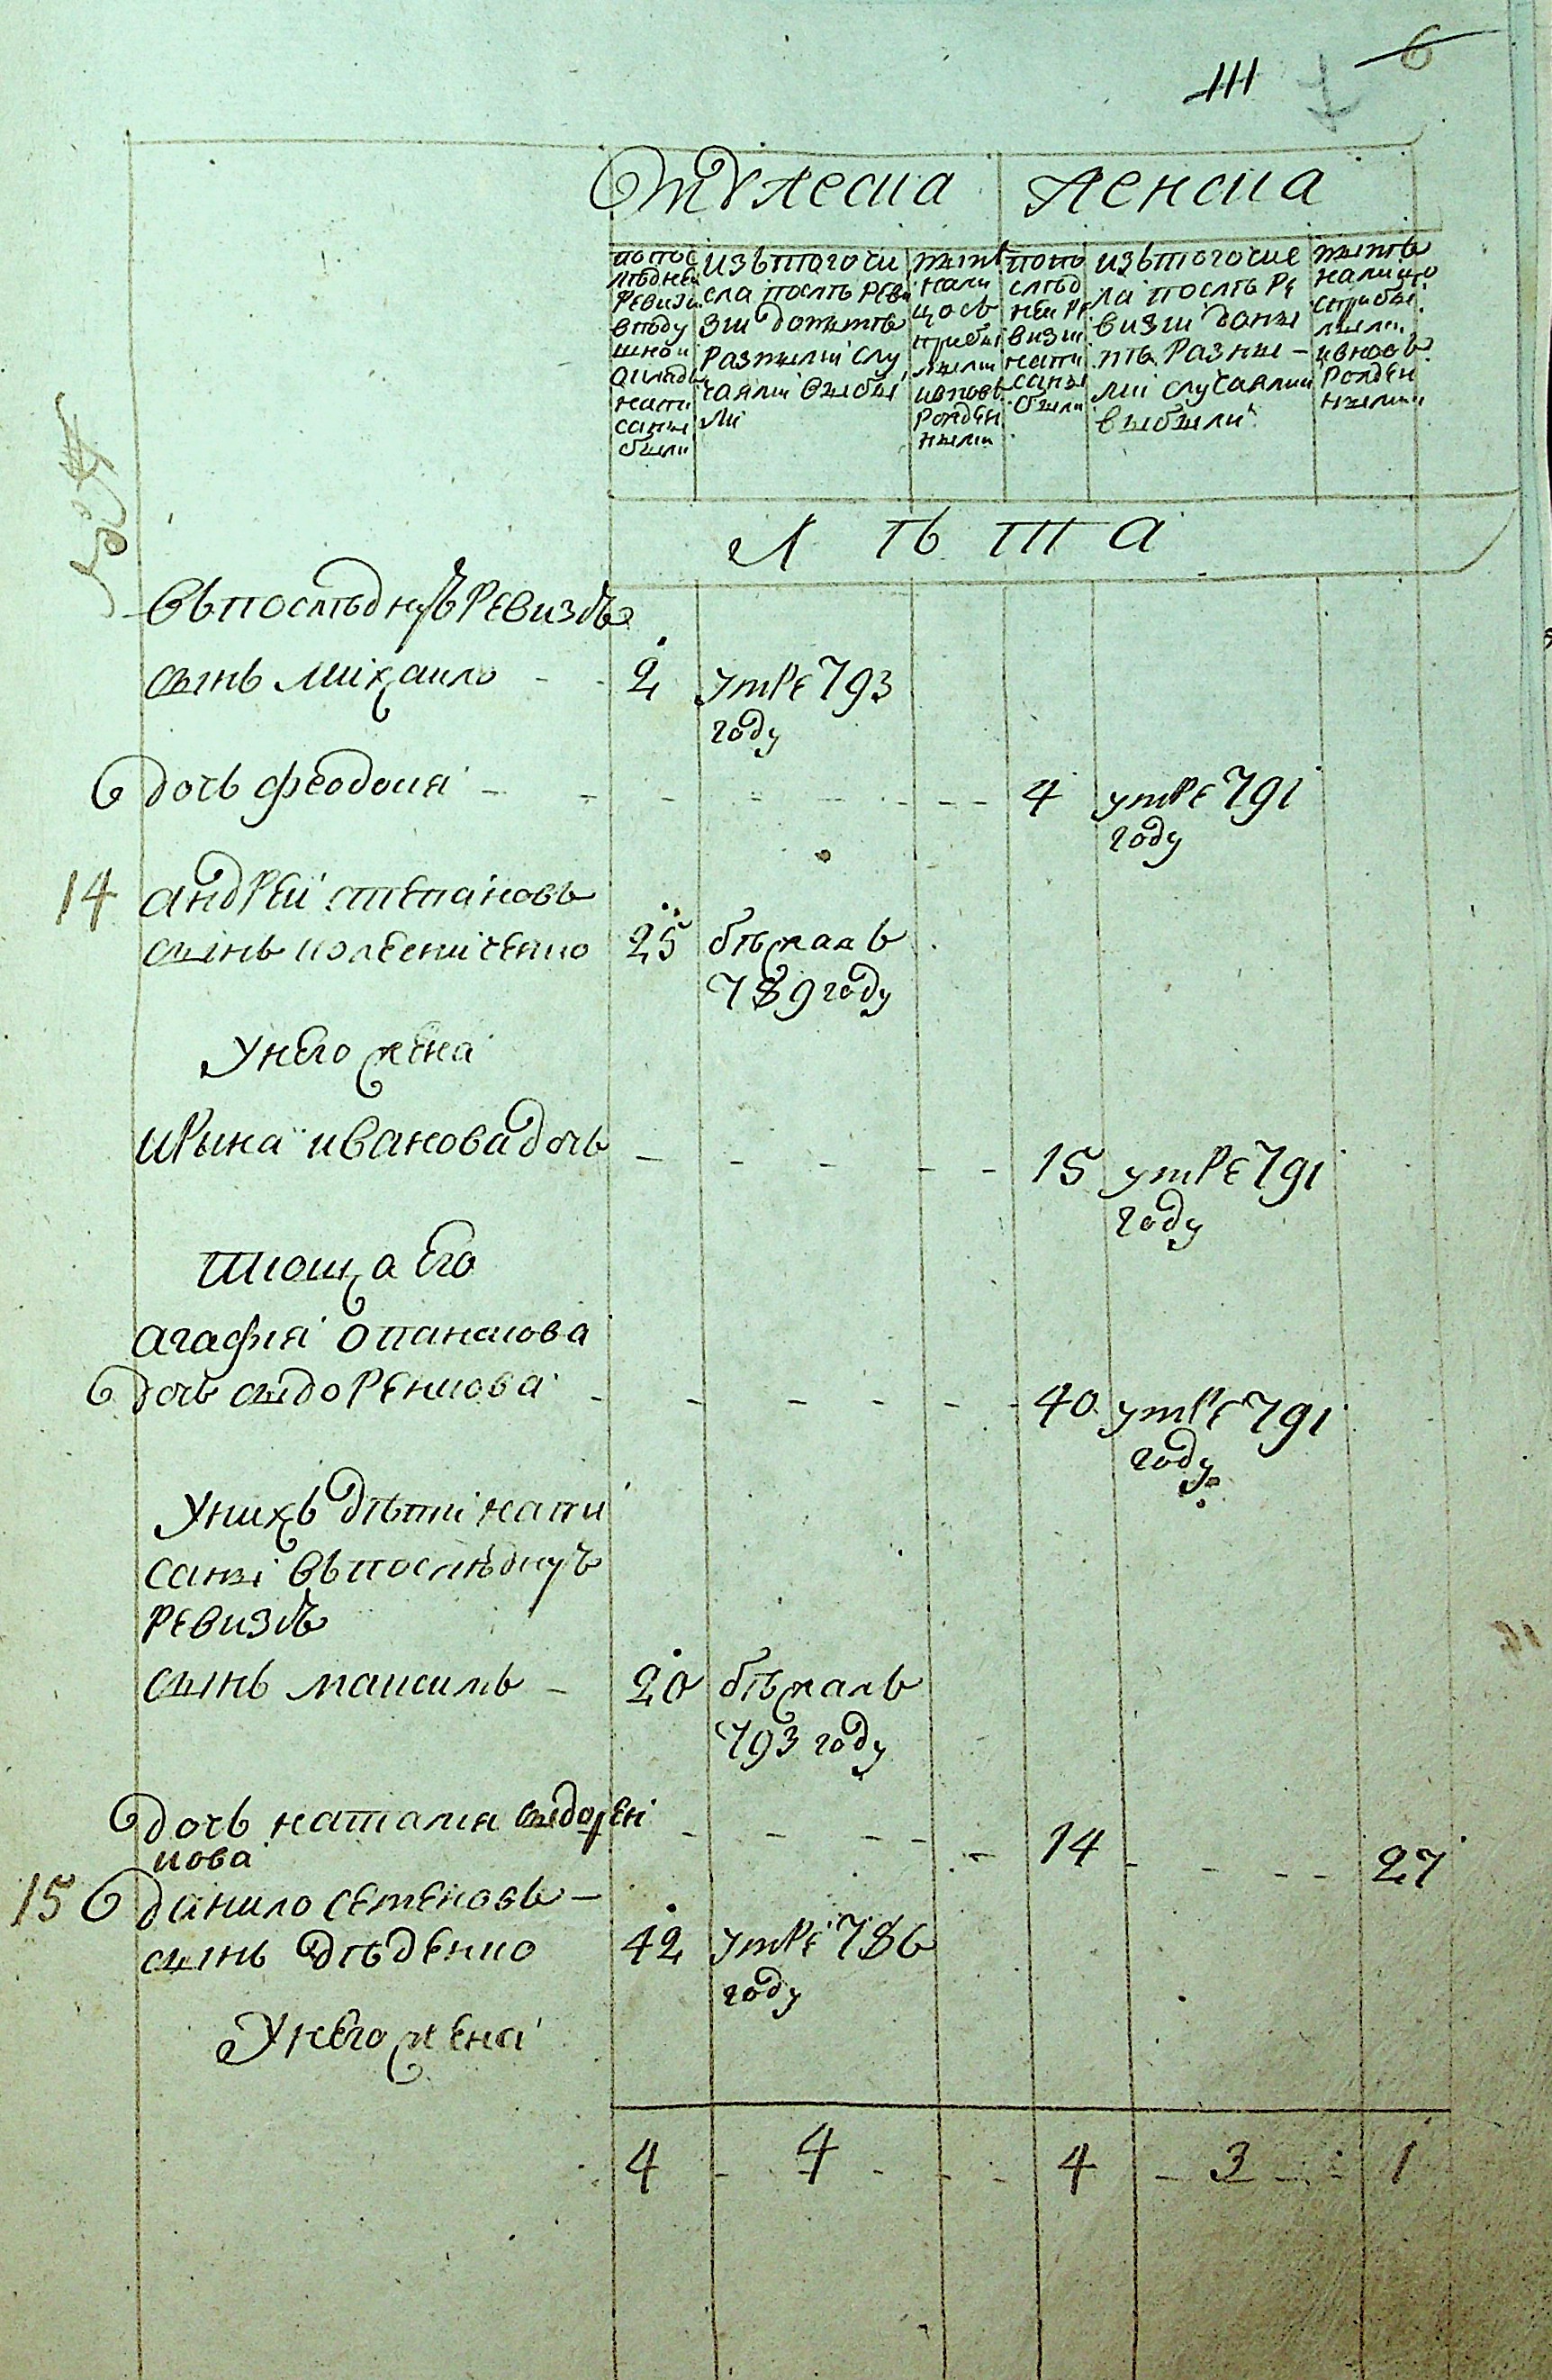 6
111
Мужеска Женска
по пос
лѣдней
ревизи
вподу
шной
окладъ
напи
саны
были
изътого чи
сла послѣ реви
зии донынѣ
разными слу
чаями выбы
ли
нынѣ
нали
цо съ
прибы
лыми
ивновь
рожден
ными
попо
слѣд
ней ре
визии
напи
саны
были
изътого чис
ла послѣ ре
визии доны
нѣ разны
ми случаями
выбыли
нынѣ
налицо
сприбы
лыми
ивновь
рожден
ными
Л ѣ т а
Въпослѣднуъ ревизѣ
сынъ михаило - - 2 умре 793
году
дочь феодосия - - - - - - - - 4 умре 791
году
14 андрей степановъ
сынъ колесниченко 25 бѣжалъ
789 году
Унего жена
Ирына иванова дочь - - - - - 15 умре 791
году
Тиоща Его
агафия опанасова
дочь сыдоренкова - - - - - - 40 умре 791
году
Унихъ дѣти напи
саны въпослѣднуъ
ревизѣ
сынъ максимъ - 20 бѣжалъ
793 году
дочь наталия сыдорен
кова - - - - - 14 - - - - 27
15 данило семеновъ -
сынъ дѣденко 42 умре 786
году
Унего жена
4 - 4 - - - 4 - 3 - - 1